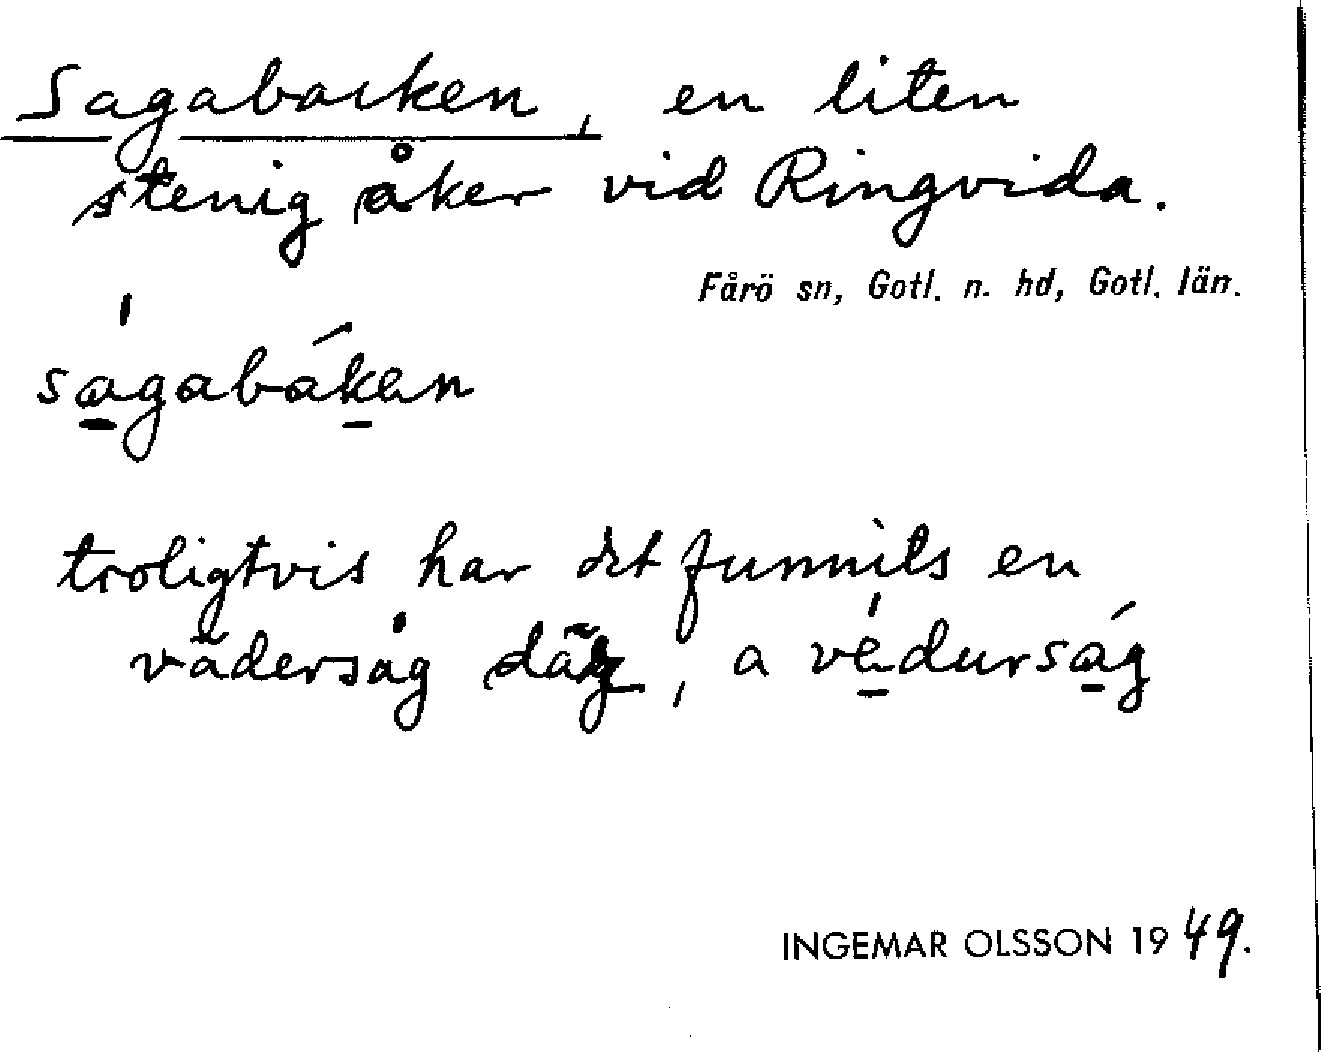 Sagabacken, en liten
stenig åker vid Ringvida.
Fårö sn, Gotl. n. hd, Gotl. län.
ságabáken
troligtvis har det funnits en
vädersåg, a védurság
INGEMAR OLSSON 1949.